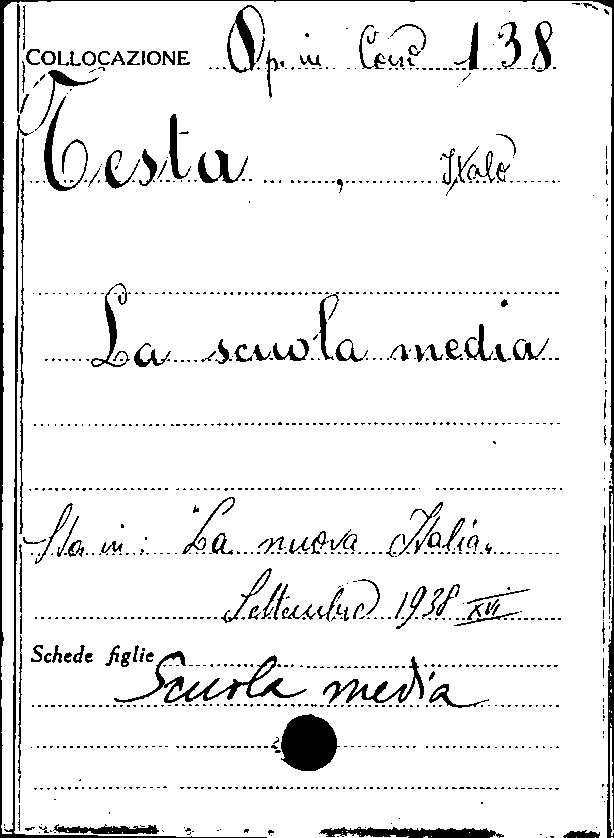 COLLOCAZIONE Op. in Cons 138
Testa, Italo
La scuola media
Sta in: "La nuova Italia„
Settembre 1938 XVI
Schede figlie
Scuola media